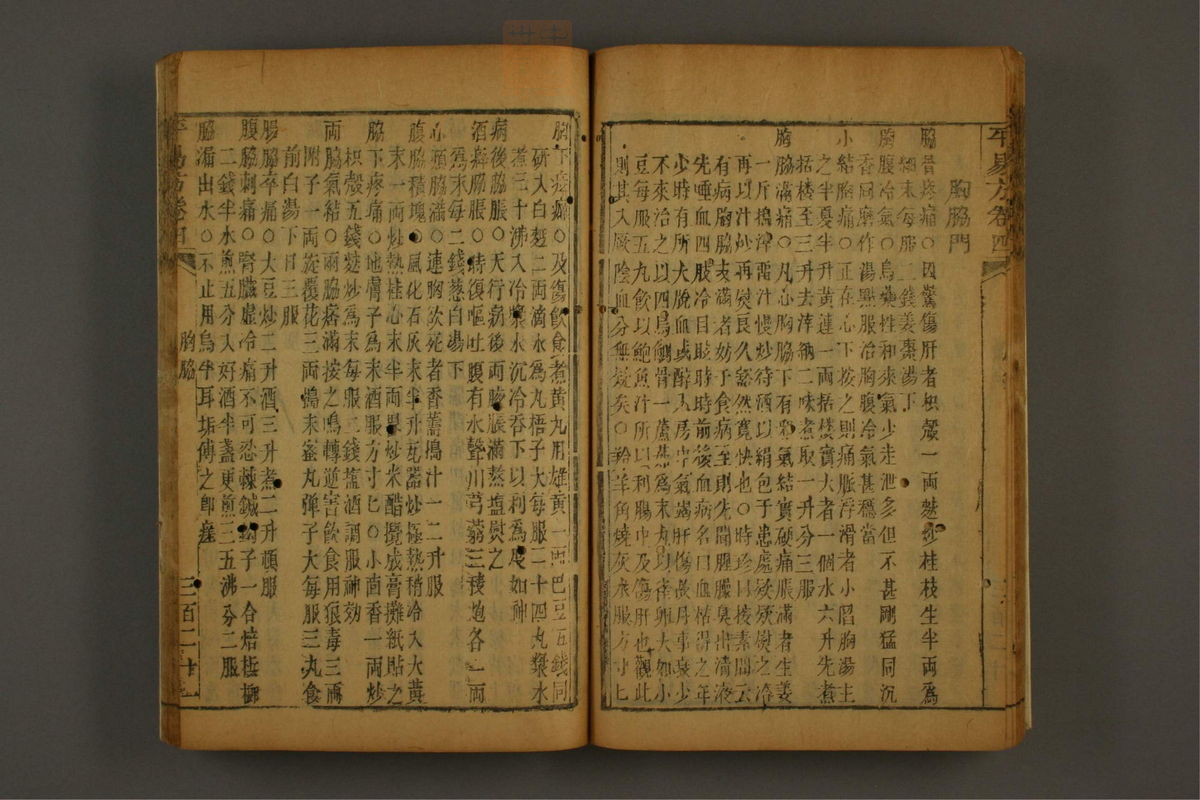 平易方卷四
胸脇門
脇骨疼痛○因驚傷肝者枳殼一兩麩炒桂枝生半兩爲
細末每服二錢姜棗湯下
胸腹冷氣○烏藥性和來氣少走泄多但不甚剛猛同沉
香同磨作湯點服治胸腹冷氣甚穩當
小結胸痛○正在心下按之則痛脹浮滑者小陷胸湯主
之半夏半升黃連一兩括樓實大者一個水六升先煮
括樓至三升去滓納二味煮取一升分三服
胸脇滿痛○凡心胸脇下有邪氣結實硬痛脹滿者生姜
一斤搗渣畱汁慢炒待潤以絹包于患處欵欵熨之冷
再以汁炒再熨良久豁然寬快也○時珍曰按素問云
有病胸脇支滿者妨于食病至則先聞腥臊臭出清液
先唾血四肢冷目眩時時前後血病名曰血枯得之年
少時有所大脫血或醉入房中氣竭肝傷故月事衰少
不來治之以四烏鰂骨一藘茹爲末丸以雀卵大如小
豆每服五丸飲以鮑魚汁所以利腸中及傷肝也觀此
則其入厥陰血分無疑矣○羚羊角燒灰水服方寸匕
胸下痞癖○及傷飲食煮黃丸用雄黃一兩巴豆五錢同
研入白麪二兩滴水爲丸梧子大每服二十四丸漿水
煮三十沸入冷漿水沉冷吞下以利爲度如神
病後脇脹○天行病後兩脇脹滿熬塩熨之
酒癖脇脹○時復嘔吐腹有水聲川芎蓊三稜炮各一兩
爲末每二錢葱白湯下
心痛脇滿○連胸欲死者香薷搗汁一二升服
腹脇積塊○風化石灰末半升瓦器炒極熱稍冷入大黃
末一兩炒熱桂心末半兩畧炒米醋攪成膏攤紙貼之
脇下疼痛○地膚子爲末酒服方寸匕○小茴香一兩炒
枳殼五錢麩炒爲末每服二錢塩酒調服神効
兩脇氣結○兩脇痞滿按之鳴轉逆害飲食用狼毒三兩
附子一兩旋覆花三兩搗末蜜丸彈子大每服三丸食
前白湯下日三服
腸脇卒痛○大豆炒二升酒三升煮二升頓服
腹脇刺痛○腎臟虛冷痛不可忍練鍼子一合焙檳榔
二錢半水煎五分入好酒半盞更煎三五沸分二服
脇漏出水○不止用烏牛耳垢傅之卽瘥
平易方卷四
胸脇
三百二十